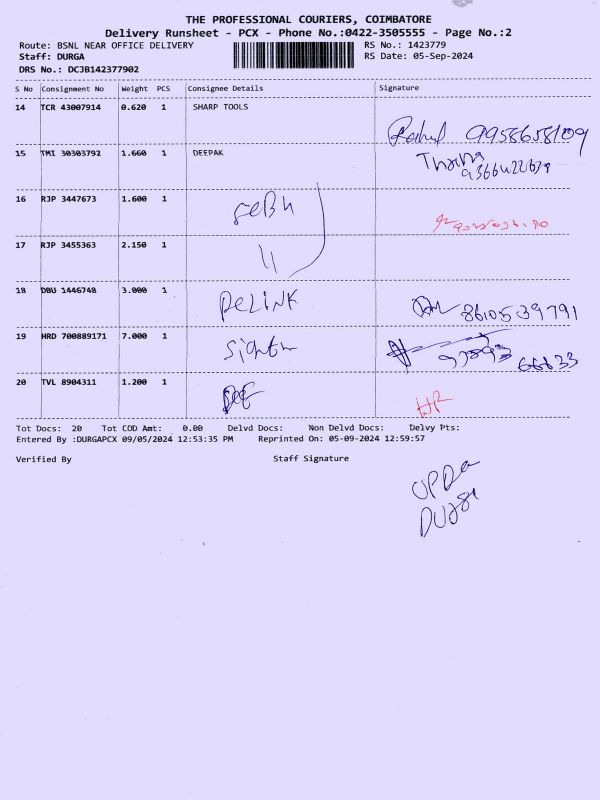 THE PROFESSIONAL COURIERS, COIMBATORE
Delivery Runsheet - PCX - Phone No.:0422-3505555 - Page No.:2
Route: BSNL NEAR OFFICE DELIVERY
RS No.: 1423779
Staff: DURGA
RS Date: 05-Sep-2024
DRS No.: DCJB142377902
S No Consignment No Weight PCS Consignee Details Signature
14 TCR 43007914 0.620 1 SHARP TOOLS
Rahul 9958658109
15 TMI 30303792 1.660 1 DEEPAK
16 RJP 3447673 1.600 1
17 RJP 3455363 2.150 1
18 DBU 1446748 3.000 1 8610539791
19 HRD 700889171 7.000 1
20 TVL 8904311 1.200 1
Tot Docs: 20 Tot COD Amt: 0.00 Delvd Docs: Non Delvd Docs: Delvy Pts:
Entered By :DURGAPCX 09/05/2024 12:53:35 PM Reprinted On: 05-09-2024 12:59:57
Verified By Staff Signature